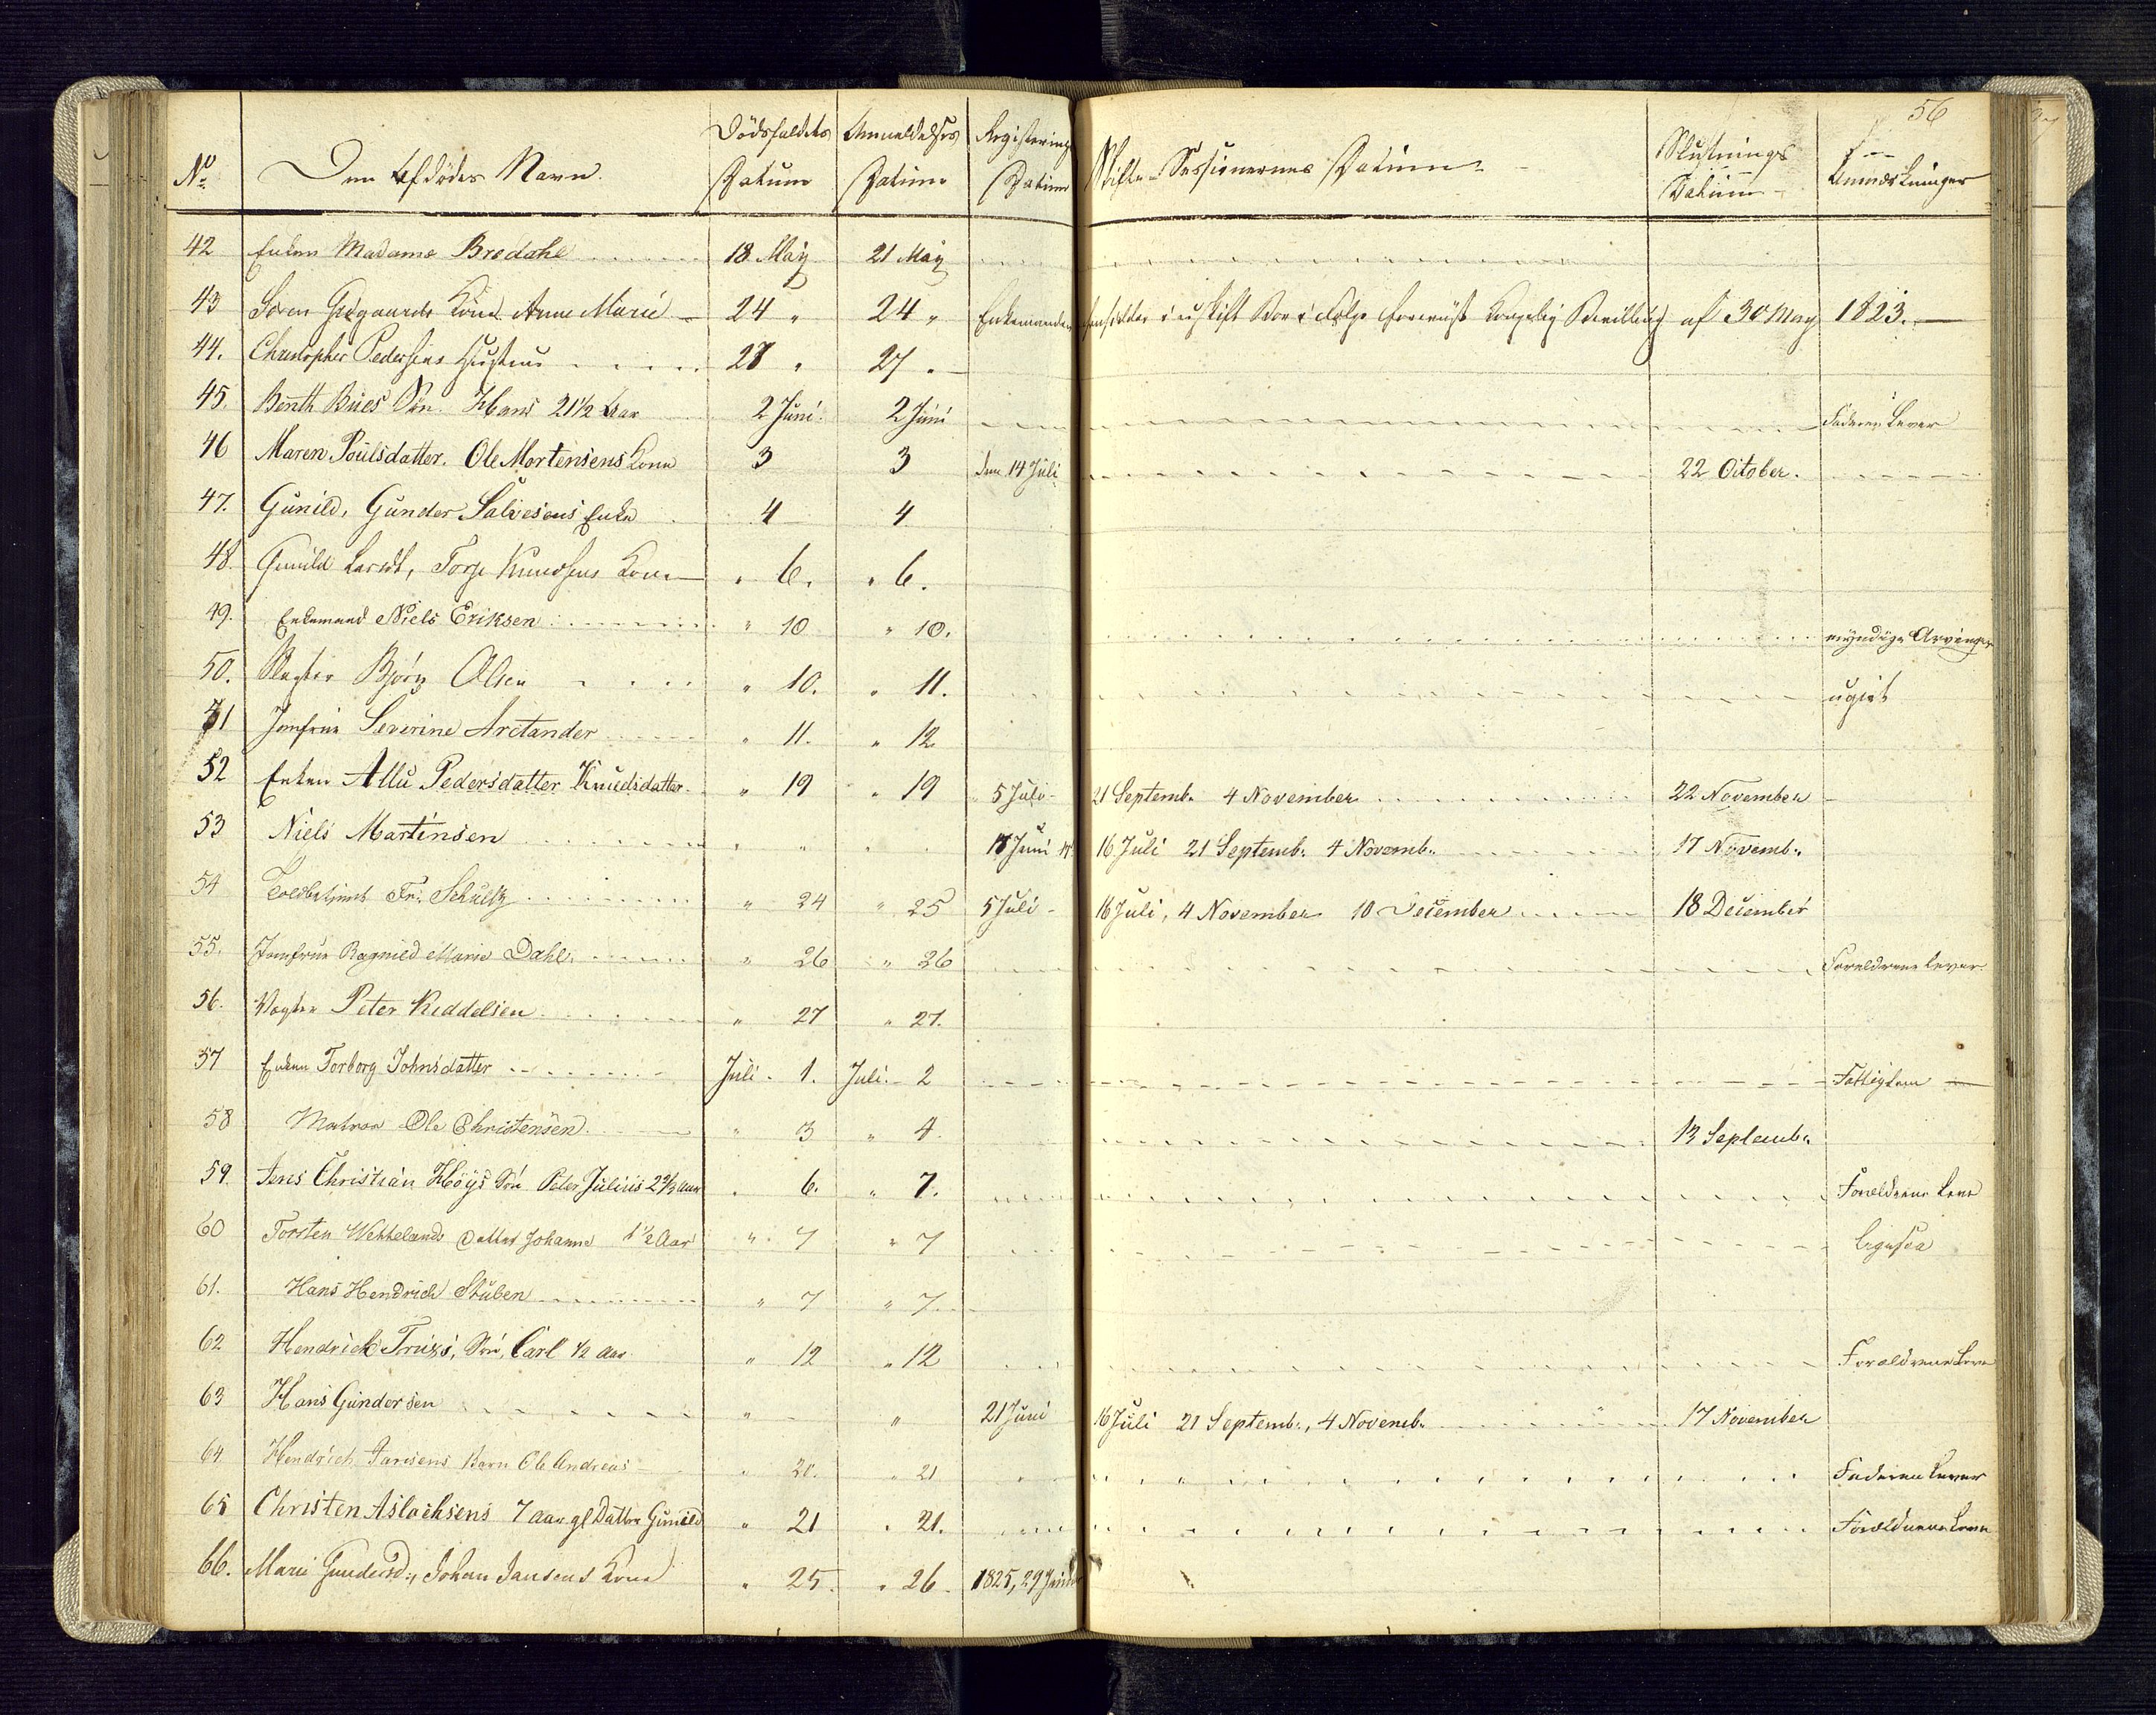 56
No Den Afdødes Navn. Dödsfaldets Datum Anmeldelses Datum Registerings Datum Skifte-Sessionernes Datum Slutnings Datum Anmærkninger
42 Enken Madame Bredahl 18 May 21 May
43 Sören Kone Anne Marie 24 " 24 " Enkemanden i uskift Boe i følge Kongelig Bevilling af 30 May 1823.
44. Christopher Pedersens Hustrue 27 "
45. Benth Bües Sön Hans 21½ Aar 2 Juni 2 Juni Faderen Lever
46 Maren Poulsdatter. Ole Mortensens Kone 3 3 den 14 Juli 22 October.
47. Gunild, Gunder Salvesens Enke 4 4
48. Gunild Larsdt, Torje Knudsens Kone " 6. " 6.
49. Enkemand Niels Eriksen " 10 " 10. myndige Arvinger
50. Björn Olsen " 10. " 11. ugivt
51 Jomfrue Severine Arctander " 11. " 12
52 Enken Allu Pedersdatter Knudsdatter " 19 " 19 5 Juli 21 Septemb. 4 November 22 November
53 Niels Martinsen " " 16 Juli 21 Septemb. 4 Novemb. 17 Novemb.
54 Toldbetjent Fr. Schultz " 24 " 25 5 Juli 16 Juli, 4 November 10 December 18 December
55. Jomfrue Ragnild Marie Dahl " 26 " 26 Foreldrene Lever
56. Peter Keddelsen " 27 " 27.
57 Enken Torborg Johnsdatter Juli 1. Juli 2 Fattiglem
58 Matros Ole Christensen " 3 " 4. 13 Septemb.
59. Jens Christian Höys Sön Peter Julius 2 Aar " 6. " 7. Forældrene Leve
60 Torsten Datter Johanne 1½ Aar " 7 " 7 ligesaa
61. Hans Hendrich Stuben " 7 " 7
62 Hendrick Sön, Carl ½ Aar " 12 " 12 Forældrene Leve
63 Hans Gundersen " " 21 Juni 16 Juli 21 Septemb., 4 Novemb. 17 November
64 Hendrich Jansens Barn Ole Andreas " 20. " 21 Faderen Lever
65 Christen Aslachsens 7 aar gl Datter Gunild " 21 " 21. Forældrene Leve
66. Marie Gundersd., Johan Jansens Kone " 25. " 26. 1825, 29